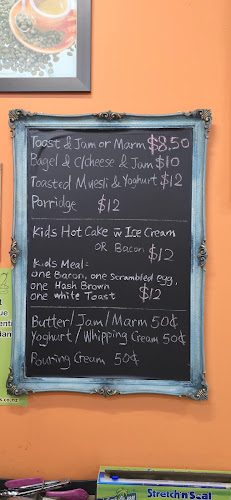 Toast & Jam or Marm $8.50
Bagel & C/cheese & Jam $10
Toasted Muesli & Yoghurt $12
Porridge $12
Kids Hot Cake w Ice Cream
OR Bacon $12
Kids Meal=
one Bacon, one scrambled egg,
one Hash Brown
one white Toast $12
Butter/Jam/Marm 50¢
Yoghurt/Whipping Cream 50¢
Pouring Cream 50¢
Stretch'n'Seal